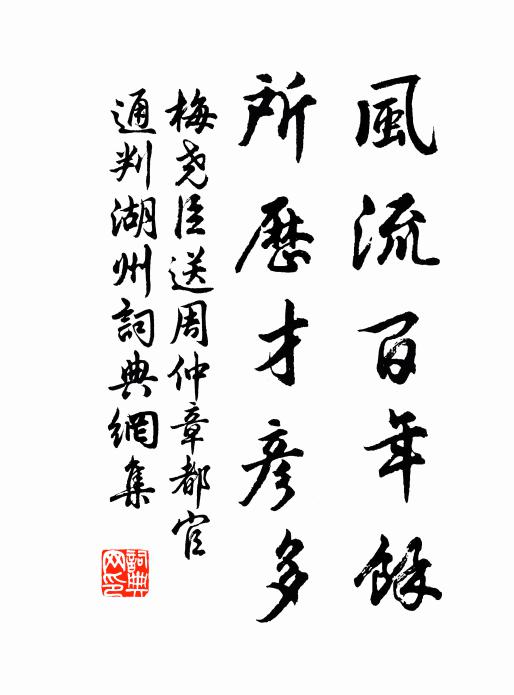 風流百年餘
所歷才彥多
梅堯臣送周仲章都官
通判湖州詞典網集
詞典网印